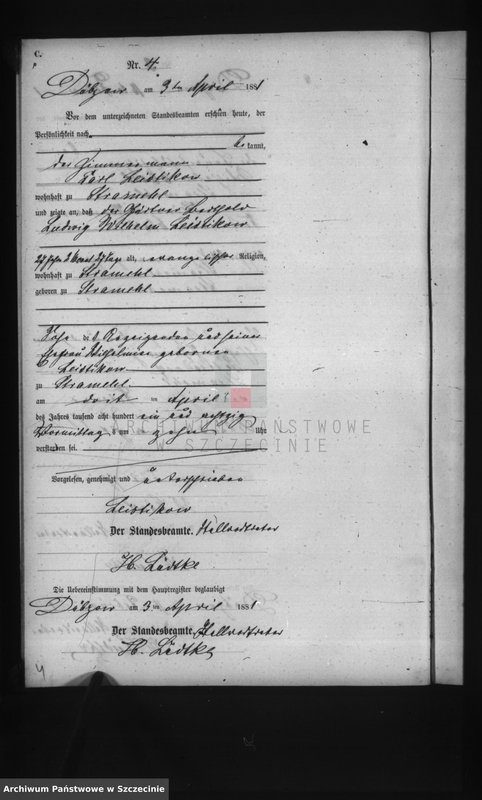 C.
Nr. 4.
Dübzow am 3ten April 1881
Vor dem unterzeichneten Standesbeamten erschien heute, der
Persönlichkeit nach
be kannt,
der Zimmermann
Carl Leistikow
wohnhaft zu Stramehl
und zeigte an, daß der Gärtner Berthold
Ludwig Wilhelm Leistikow
27 Jahr 2 Monat alt, evangelischer Religion,
wohnhaft zu Stramehl
geboren zu Stramehl
Sohn des Anzeigenden und seiner
Ehefrau Wilhelmine geborenen
Leistikow
zu Stramehl
am April
des Jahres tausend acht hundert ein und achtzig
Vormittags um zehn Uhr
verstorben sei.
Vorgelesen, genehmigt und unterschrieben
Leistikow
Der Standesbeamte. Stellvertreter
H. Lüdtke
Die Uebereinstimmung mit dem Hauptregister beglaubigt
Dübzow am 3. ten April 1881
Der Standesbeamte. Stellvertreter
H. Lüdtke
4
ARCHIWUM PAŃSTWOWE
W SZCZECINIE
Archiwum Państwowe w Szczecinie